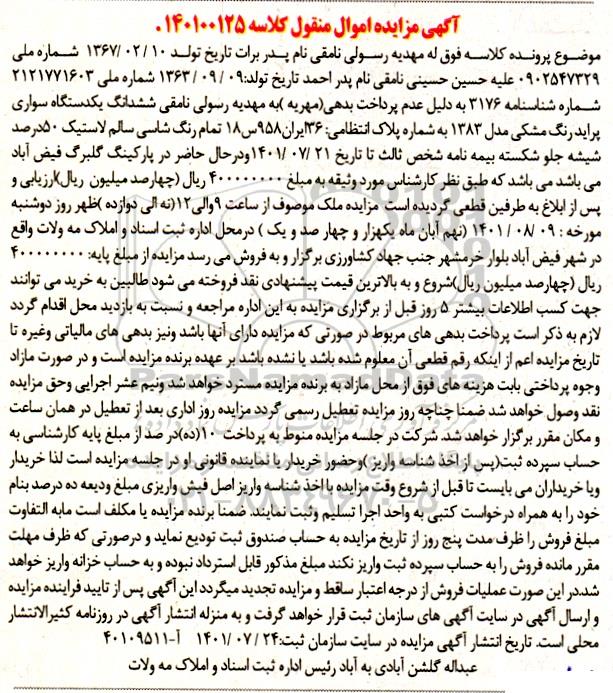 آگهی مزایده اموال منقول کلاسه ۱۴۰۱۰۰۱۲۵ .
موضوع پرونده کلاسه فوق له مهدیه رسولی نامقی نام پدر برات تاریخ تولد ۱۰ / ۰۲ /۱۳۶۷ شماره ملی
۰۹۰۲۵۴۷۳۲۹ علیه حسین حسینی نامقی نام پدر احمد تاریخ تولد:۰۹ / ۰۹ /۱۳۶۳ شماره ملی ۲۱۲۱۷۷۱۶۰۳
شماره شناسنامه ۳۱۷۶ به دلیل عدم پرداخت بدهی(مهریه )به مهدیه رسولی نامقی ششدانگ یکدستگاه سواری
پراید رنگ مشکی مدل ۱۳۸۳ به شماره پلاک انتظامی: ۳۶ایران۹۵۸س۱۸ تمام رنگ شاسی سالم لاستیک ۵۰درصد
شیشه جلو شکسته بیمه نامه شخص ثالث تا تاریخ ۲۱ /۰۷ /۱۴۰۱ودرحال حاضر در پارکینگ گلبرگ فیض آباد
می باشد می باشد که طبق نظر کارشناس مورد وثیقه به مبلغ ۴۰۰۰۰۰۰۰۰ ریال (چهارصد میلیون ریال)ارزیابی و
پس از ابلاغ به طرفین قطعی گردیده است مزایده ملک موصوف از ساعت ۹والی۱۲(نه الی دوازده )ظهر روز دوشنبه
مورخه : ۰۹ /۰۸ /۱۴۰۱ (نهم آبان ماه یکهزار و چهار صد و یک ) درمحل اداره ثبت اسناد و املاک مه ولات واقع
در شهر فیض آباد بلوار خرمشهر جنب جهاد کشاورزی برگزار و به فروش می رسد مزایده از مبلغ پایه: ۴۰۰۰۰۰۰۰۰
ریال (چهارصد میلیون ریال)شروع و به بالاترین قیمت پیشنهادی نقد فروخته می شود طالبین به خرید می توانند
جهت کسب اطلاعات بیشتر ۵ روز قبل از برگزاری مزایده به این اداره مراجعه و نسبت به بازدید محل اقدام گردد
لازم به ذکر است پرداخت بدهی های مربوط در صورتی که مزایده دارای آنها باشد ونیز بدهی های مالیاتی وغیره تا
تاریخ مزایده اعم از اینکه رقم قطعی آن معلوم شده باشد یا نشده باشد بر عهده برنده مزایده است و در صورت مازاد
وجوه پرداختی بابت هزینه های فوق از محل مازاد به برنده مزایده مسترد خواهد شد ونیم عشر اجرایی وحق مزایده
نقد وصول خواهد شد ضمنا چناچه روز مزایده تعطیل رسمی گردد مزایده روز اداری بعد از تعطیل در همان ساعت
و مکان مقرر برگزار خواهد شد. شرکت در جلسه مزایده منوط به پرداخت ۱۰(ده)در صد از مبلغ پایه کارشناسی به
حساب سپرده ثبت(پس از اخذ شناسه واریز )وحضور خریدار یا نماینده قانونی او در جلسه مزایده است لذا خریدار
ویا خریداران می بایست تا قبل از شروع وقت مزایده با اخذ شناسه واریز اصل فیش واریزی مبلغ ودیعه ده درصد بنام
خود را به همراه درخواست کتبی به واحد اجرا تسلیم وثبت نمایند. ضمنا برنده مزایده یا مکلف است مابه التفاوت
مبلغ فروش را ظرف مدت پنج روز از تاریخ مزایده به حساب صندوق ثبت تودیع نماید و درصورتی که ظرف مهلت
مقرر مانده فروش را به حساب سپرده ثبت واریز نکند مبلغ مذکور قابل استرداد نبوده و به حساب خزانه واریز خواهد
شد.در این صورت عملیات فروش از درجه اعتبار ساقط و مزایده تجدید میگردد این آگهی پس از تایید فراینده مزایده
و ارسال آگهی در سایت آگهی های سازمان ثبت قرار خواهد گرفت و به منزله انتشار آگهی در روزنامه کثیرالانتشار
محلی است. تاریخ انتشار آگهی مزایده در سایت سازمان ثبت:۲۴ /۰۷ /۱۴۰۱ آ-۴۰۱۰۹۵۱۱
عبداله گلشن آبادی به آباد رئیس اداره ثبت اسناد و املاک مه ولات